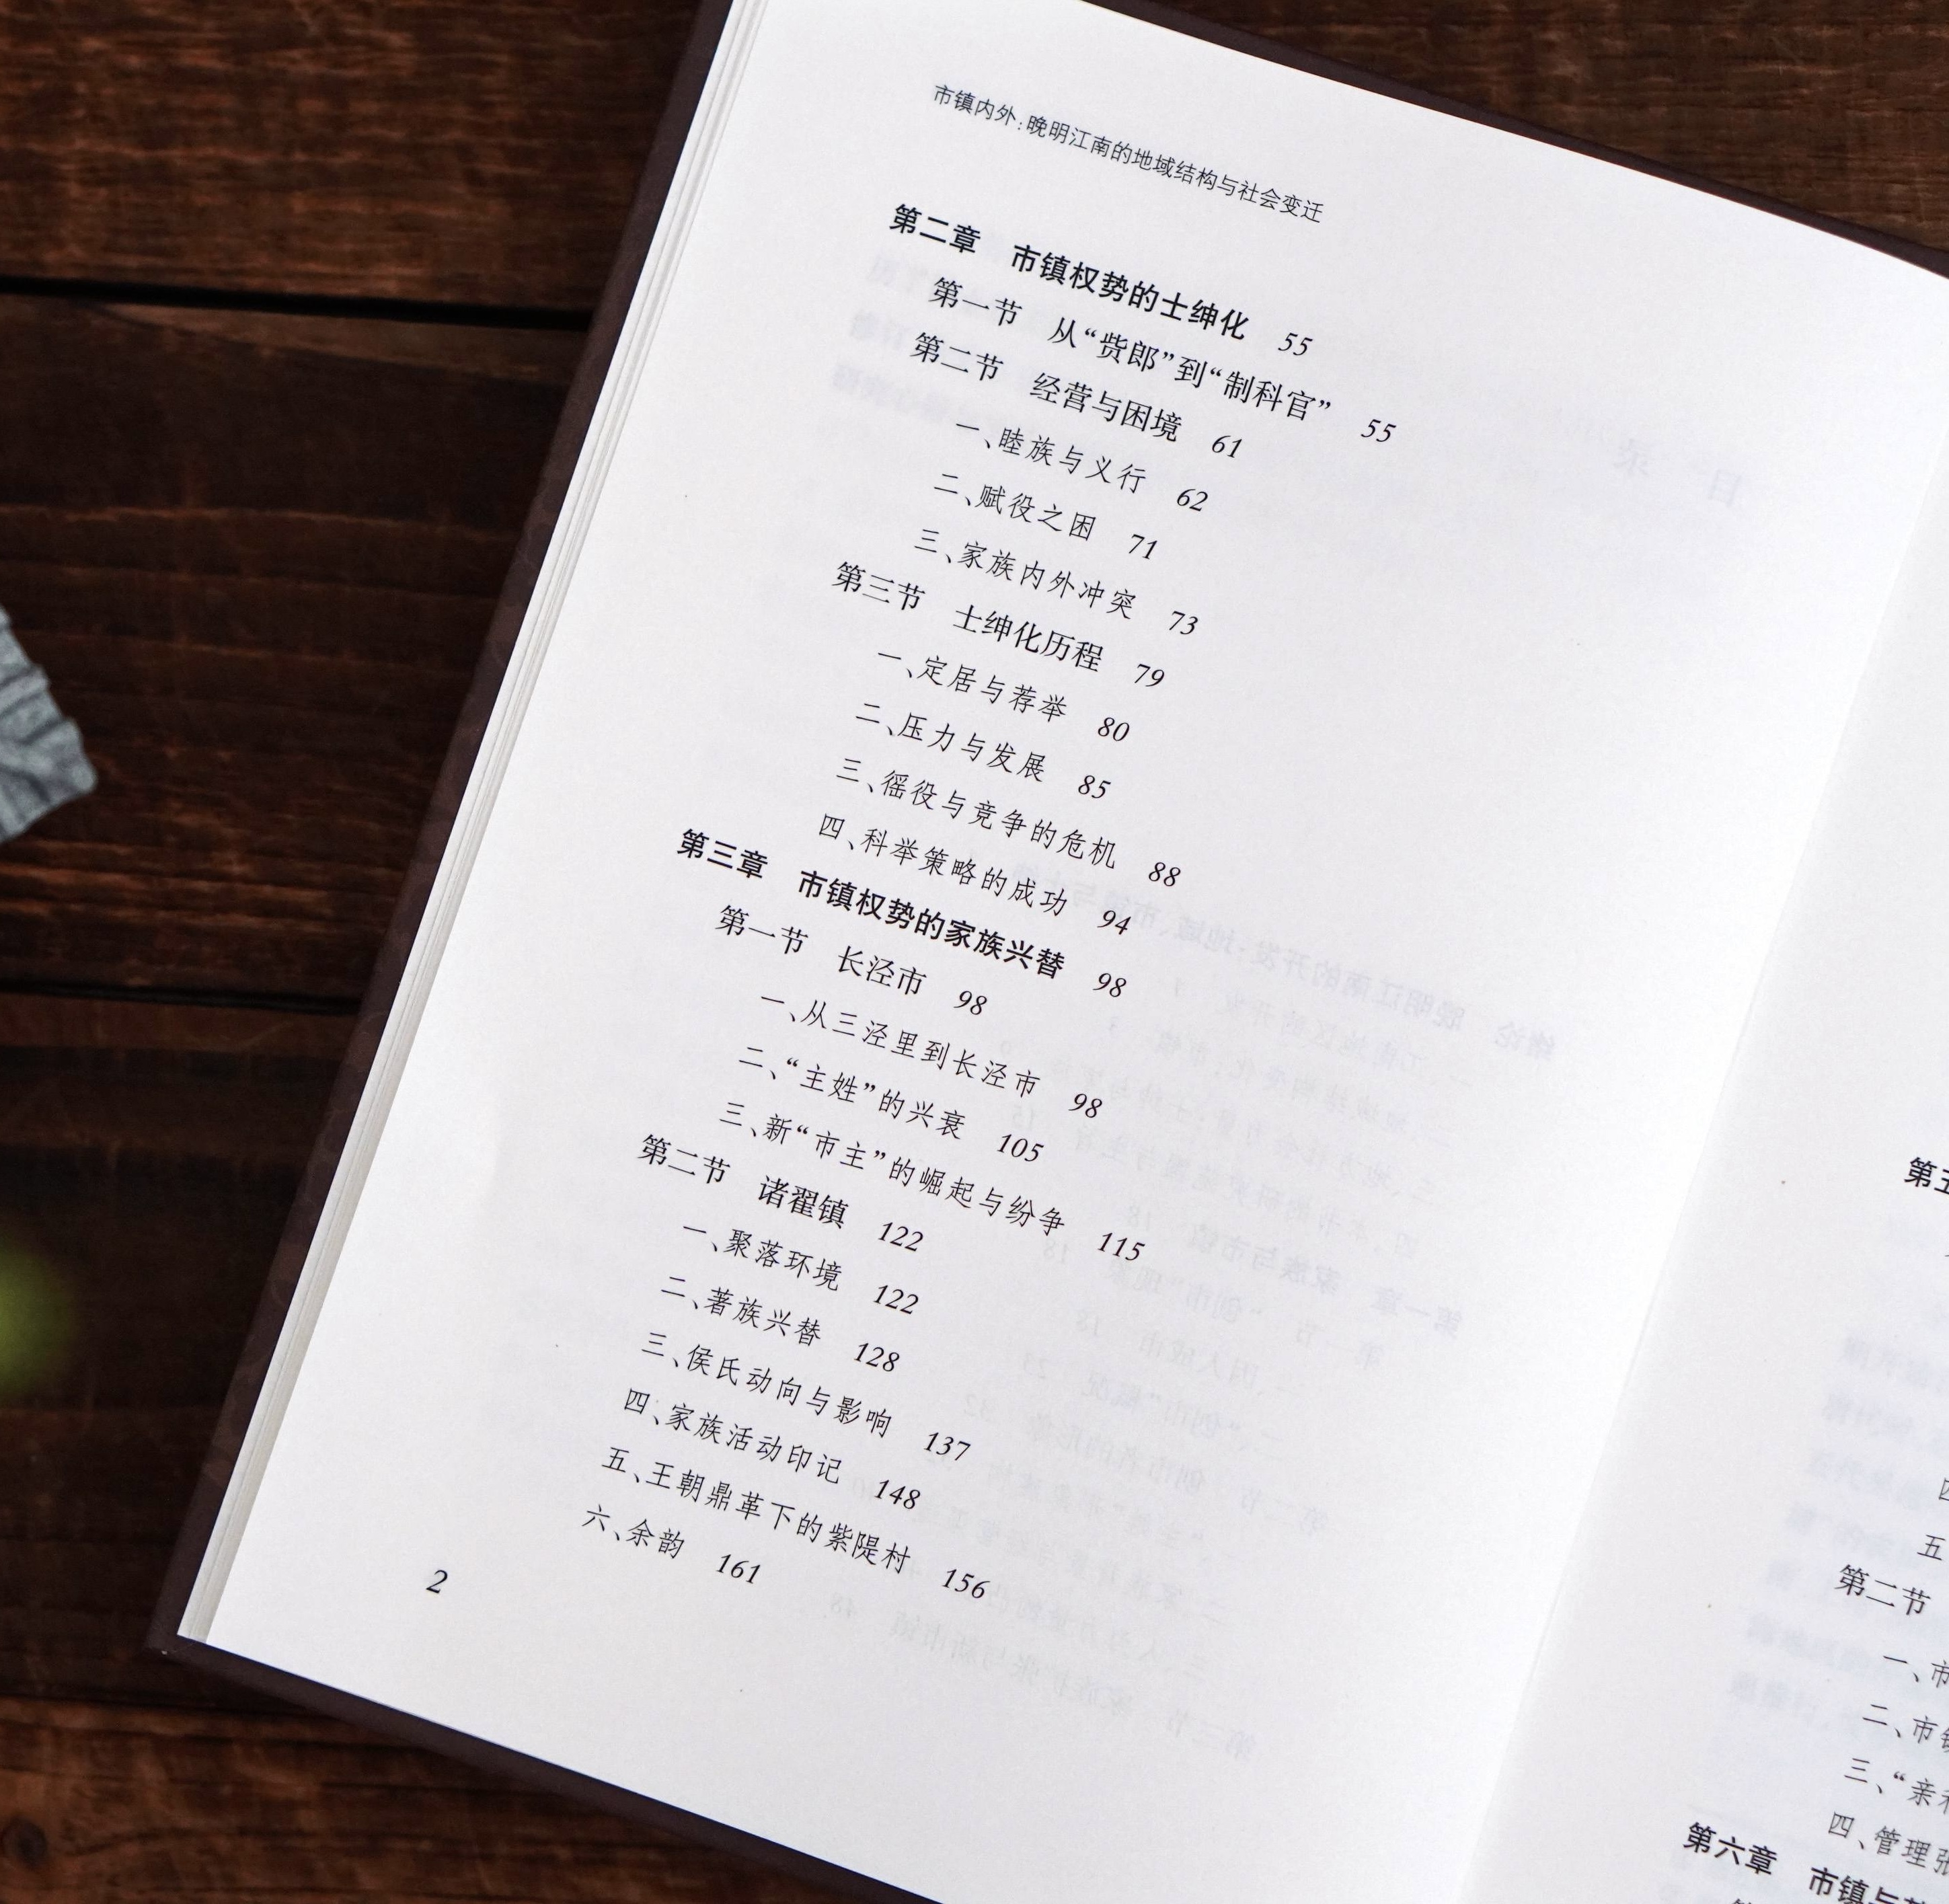 市镇内外：晚明江南的地域结构与社会变迁
第二章 市镇权势的士绅化 55
第一节 从“赀郎”到“制科官” 55
第二节 经营与困境 61
一、睦族与义行 62
二、赋役之困 71
三、家族内外冲突 73
第三节 士绅化历程 79
一、定居与荐举 80
二、压力与发展 85
三、徭役与竞争的危机 88
四、科举策略的成功 94
第三章 市镇权势的家族兴替 98
第一节 长泾市 98
一、从三泾里到长泾市 98
二、“主姓”的兴衰 105
三、新“市主”的崛起与纷争 115
第二节 诸翟镇 122
一、聚落环境 122
二、著族兴替 128
三、侯氏动向与影响 137
四、家族活动印记 148
五、王朝鼎革下的紫隄村 156
六、余韵 161
2
第五
四
五
第二节
一、市
二、市镇
三、“亲
四、管理张
第六章 市镇与